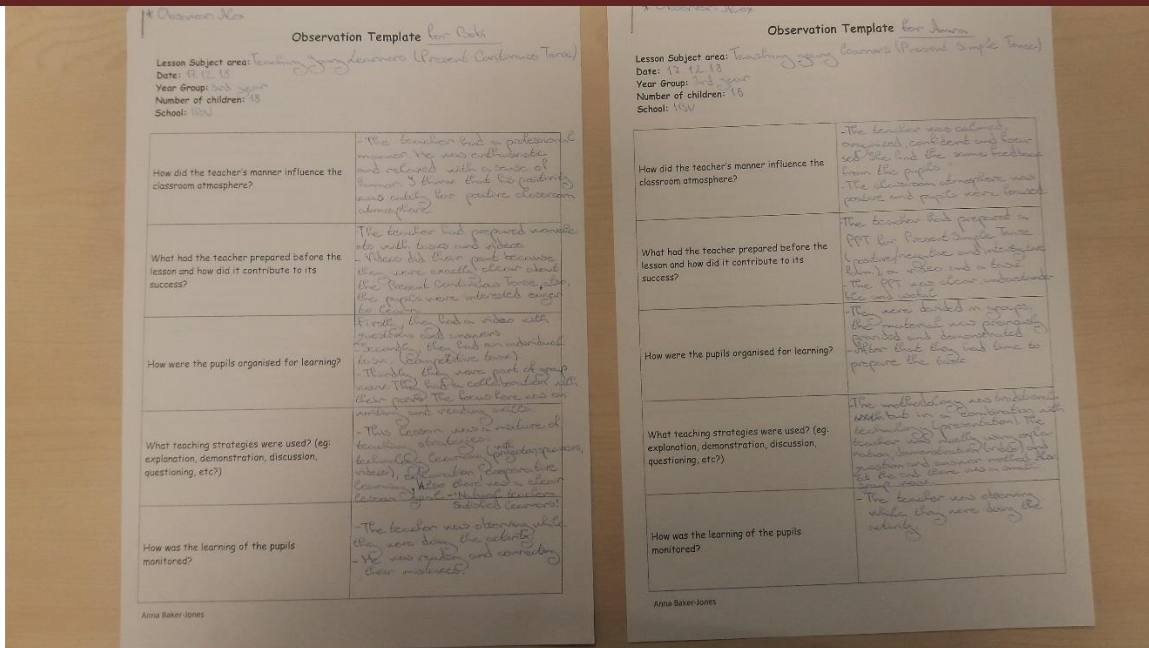 * Observer: Alex
Observation Template for Bobi
Lesson Subject area: Teaching young learners (Present Continuous Tense)
Date: 17.12.18
Year Group: 3rd year
Number of children: 18
School:
How did the teacher's manner influence the
classroom atmosphere?
-The teacher had a professional
manner. He was enthusiastic
and relaxed with a sense of
humor. I think that his positivity
was for positive classroom
atmosphere
What had the teacher prepared before the
lesson and how did it contribute to its
success?
The teacher had prepared
with tasks and videos
- Videos did their part because
they were exactly clear about
the Present Continuous Tense, also,
the pupils were interested eager
to learn
How were the pupils organised for learning?
-Firstly, they had a video with
questions and answers
-Secondly, they had an individual
task (competitive task)
-Thirdly they were part of group
work. They had a collaboration with
their peers. The focus here was on
writing and reading skills
What teaching strategies were used? (eg:
explanation, demonstration, discussion,
questioning, etc?)
- This lesson was a mixture of
teaching strategies:
learning
videos), explanation,
learning. Also there was a clear
lesson
learners!
How was the learning of the pupils
monitored?
-The teacher was observing while
they were doing the activity
- He was and correcting
their mistakes.
Anna Baker-Jones
* Observer: Alex
Observation Template for Anna
Lesson Subject area: Teaching young learners (Present Simple Tense)
Date: 17.12.18
Year Group: 3rd year
Number of children: 18
School:
How did the teacher's manner influence the
classroom atmosphere?
-The teacher was calmed,
organized, confident and focu-
sed. She had the same feedback
from the pupils
-The classroom atmosphere was
positive and pupils were focused.
What had the teacher prepared before the
lesson and how did it contribute to its
success?
-The teacher had prepared a
PPT for Present Simple Tense
(positive, negative and
form), a video and a task
-The PPT was clear, understanda-
ble and useful
How were the pupils organised for learning?
-They were divided in groups,
the material was previously
provided and demonstrated
-After that they had time to
prepare the task
What teaching strategies were used? (eg:
explanation, demonstration, discussion,
questioning, etc?)
-The methodology was
but in a combination with
technology (presentation). The
teacher was expla-
nation, demonstration (video) and
question and answer method. Also
at the end there was a small
group work.
How was the learning of the pupils
monitored?
- The teacher was observing
while they were doing the
activity
Anna Baker-Jones